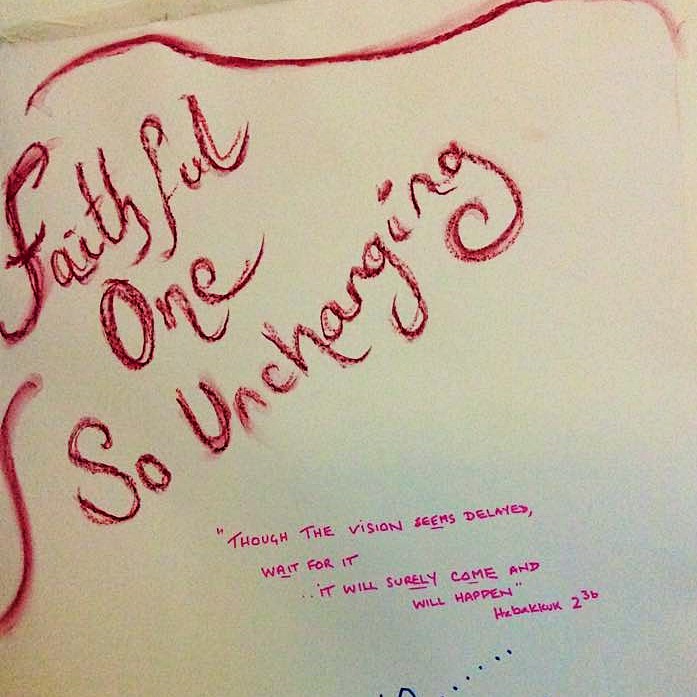 Faithful
One
So Unchanging
"THOUGH THE VISION SEEMS DELAYED,
WAIT FOR IT
..IT WILL SURELY COME AND
WILL HAPPEN"
Habakkuk 2 3b